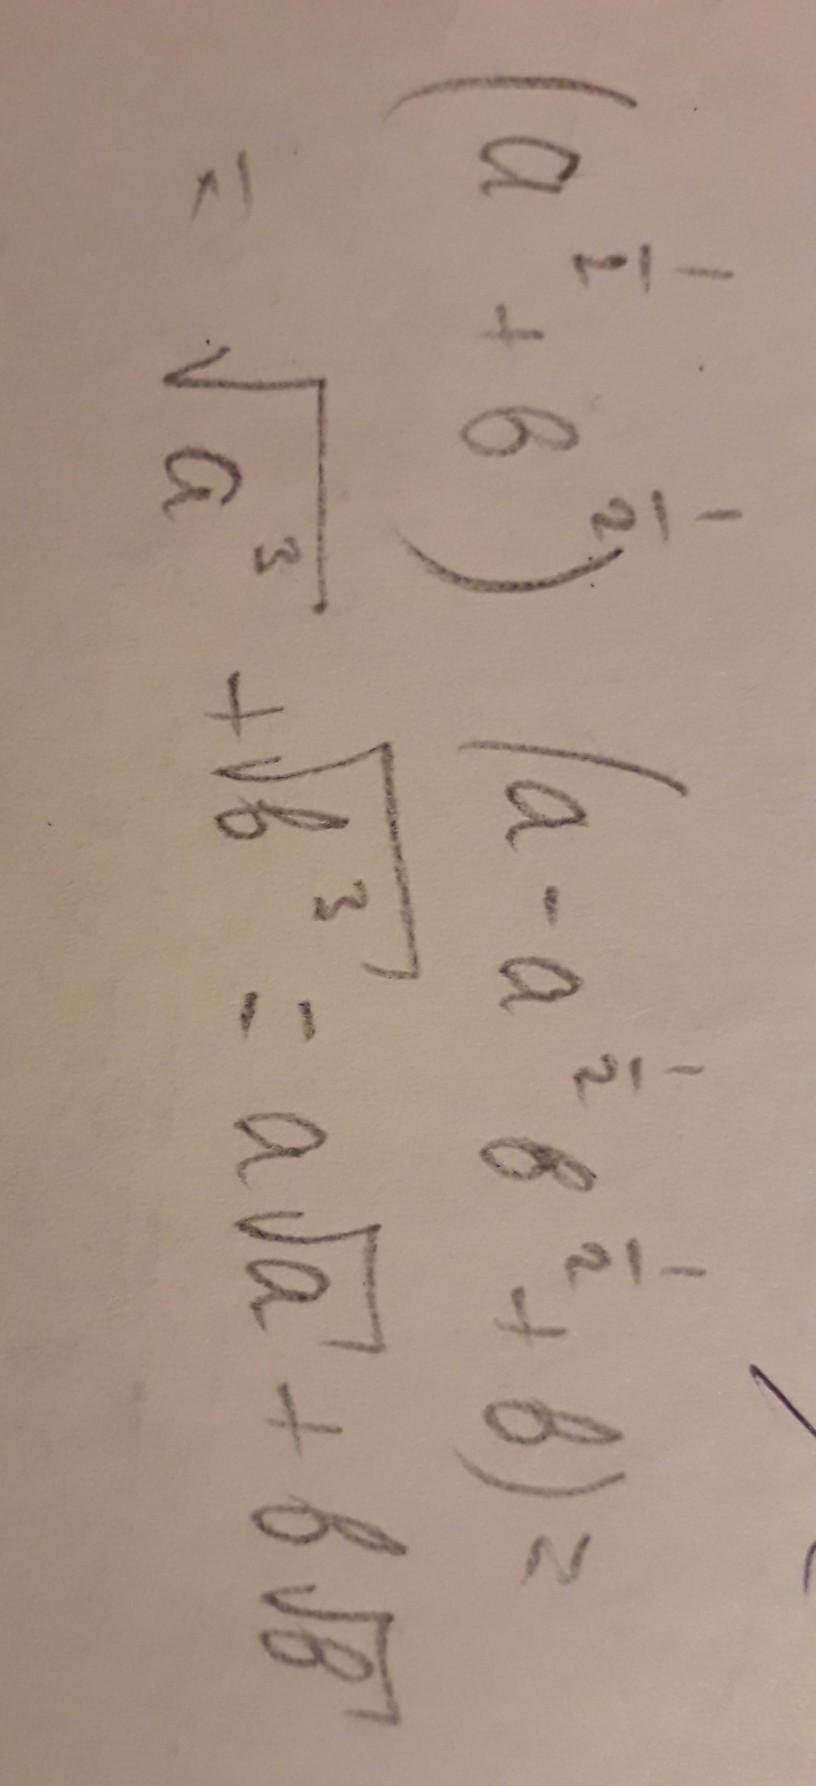 (a^{\frac{1}{2}} + b^{\frac{1}{2}}) (a - a^{\frac{1}{2}} b^{\frac{1}{2}} + b) =
= \sqrt{a^3} + \sqrt{b^3} = a\sqrt{a} + b\sqrt{b}